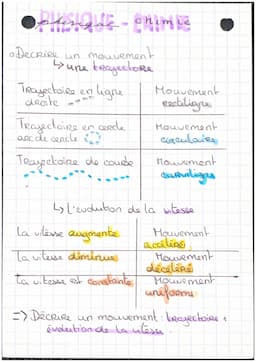 PHYSIQUE - CHIMIE
Décrire un mouvement
↳ une trajectoire
Trajectoire en ligne droite
Mouvement rectiligne
Trajectoire en cercle arc de cercle
Mouvement circulaire
Trajectoire de courbe
Mouvement curviligne
↳ L'évolution de la vitesse
La vitesse augmente
Mouvement accéléré
La vitesse diminue
Mouvement décéléré
La vitesse est constante
Mouvement uniforme
=> Décrire un mouvement : trajectoire + évolution de la vitesse.